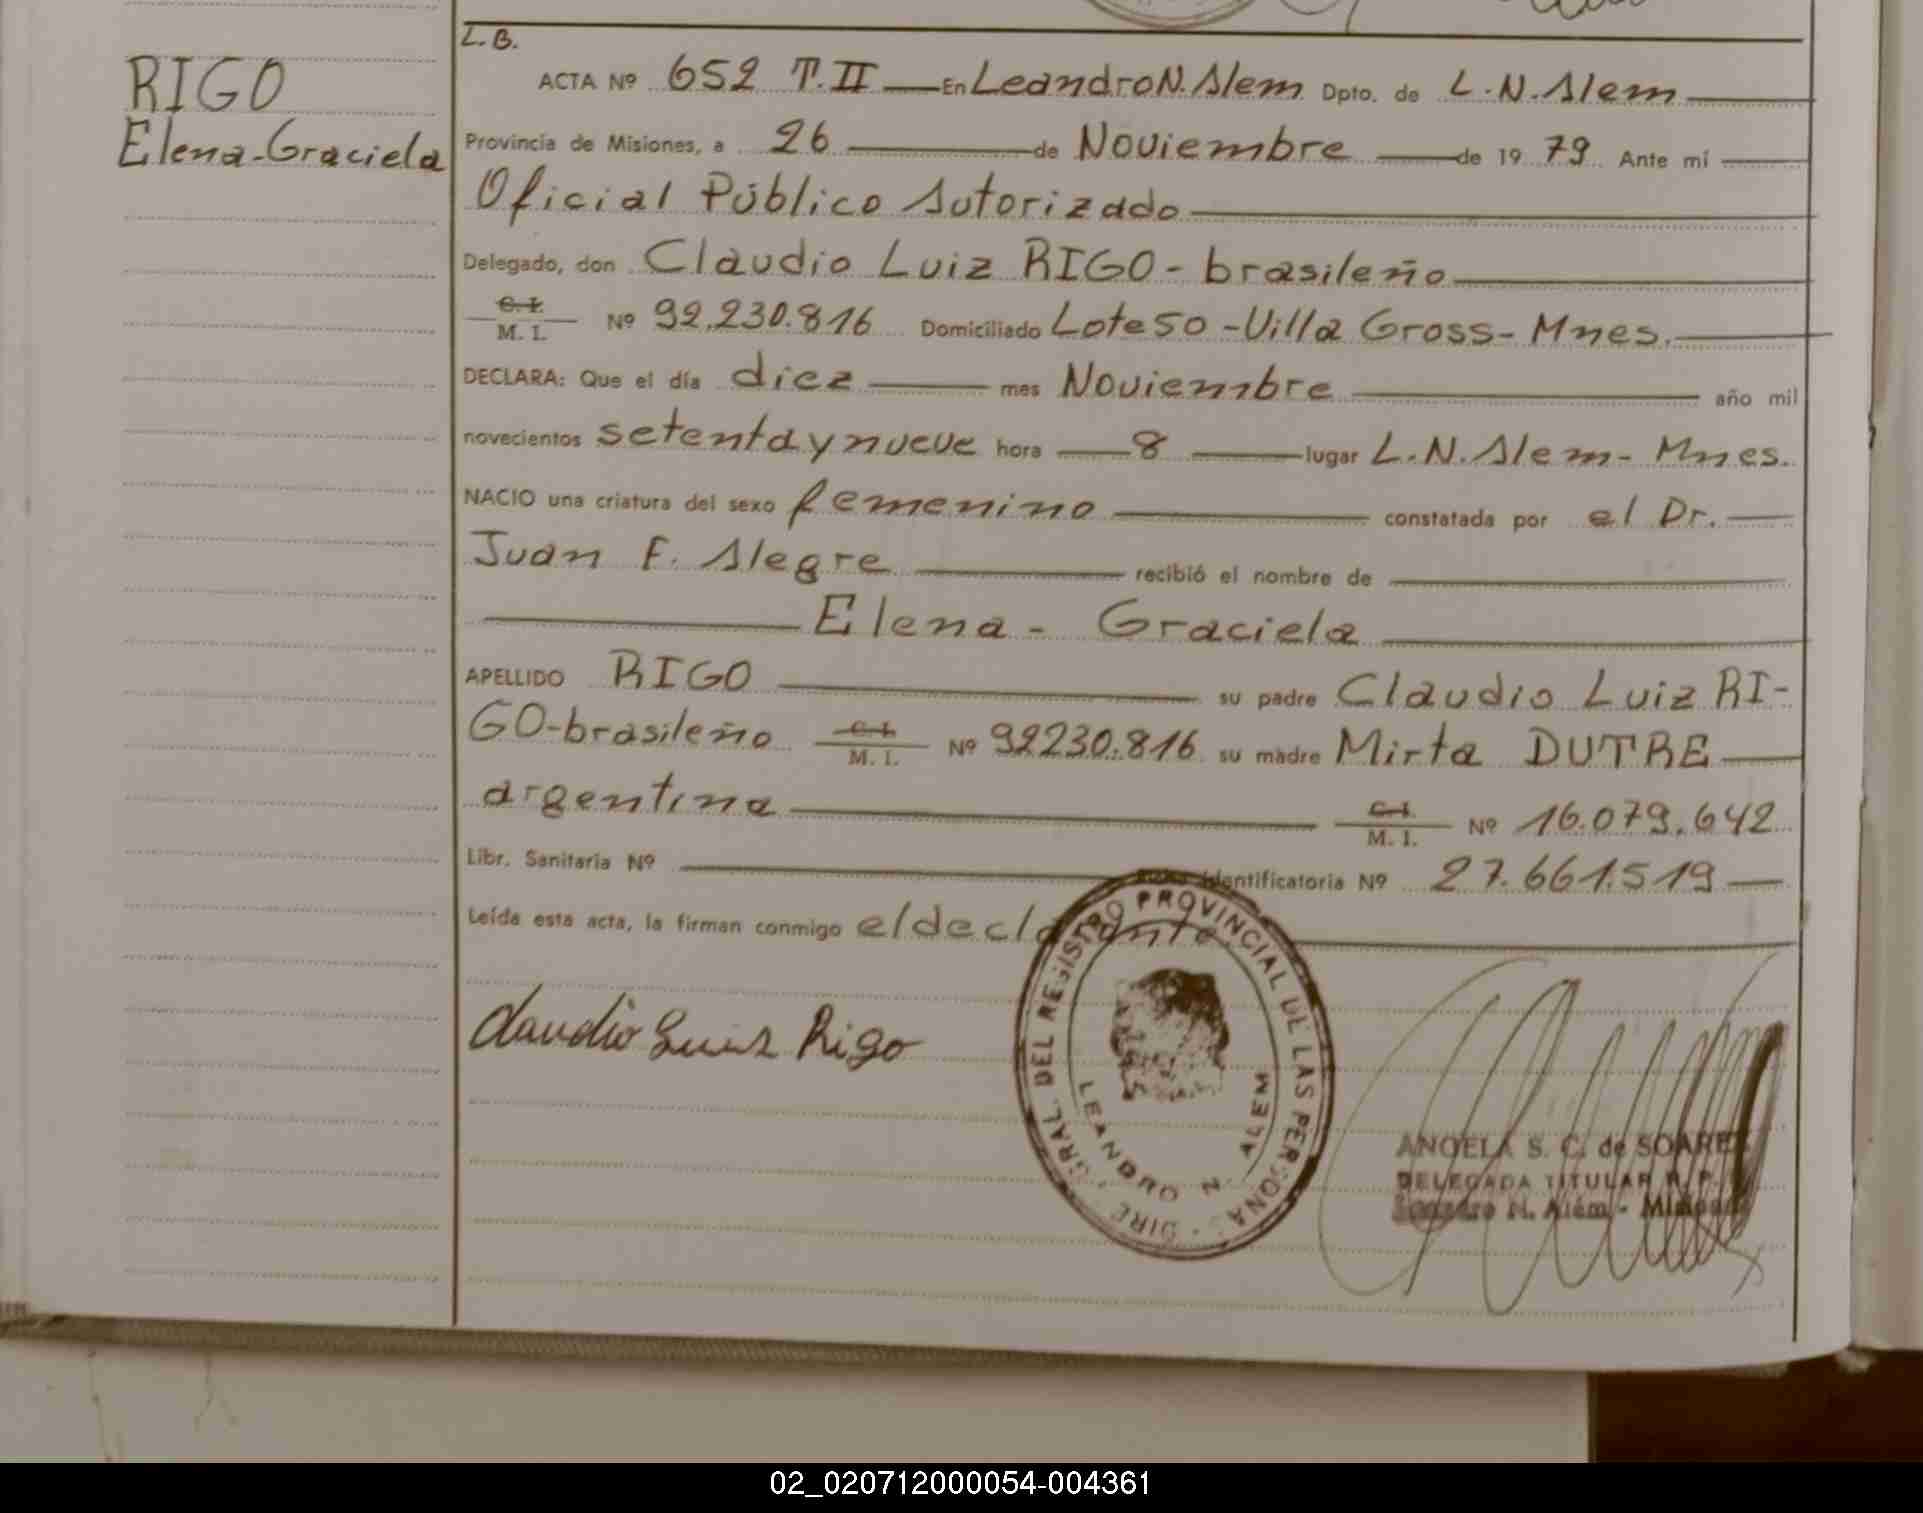 RIGO
Elena-Graciela
L.B.
ACTA Nº 652 T.II En Leandro N. Alem Dpto. de L.N. Alem
Provincia de Misiones, a 26 de Noviembre de 1979 Ante mí
Oficial Público Autorizado
Delegado, don Claudio Luiz RIGO - brasileño
C.I. M.I. Nº 92.230.816 Domiciliado Lote 50 - Villa Gross - Mnes.
DECLARA: Que el día diez mes Noviembre año mil
novecientos setenta y nueve hora 8 lugar L.N. Alem - Mnes.
NACIO una criatura del sexo femenino constatada por el Dr.
Juan F. Alegre recibió el nombre de
Elena - Graciela
APELLIDO RIGO su padre Claudio Luiz RI-
GO-brasileño C.I. M.I. Nº 92230.816 su madre Mirta DUTRE
argentina C.I. M.I. Nº 16.079.642
Libr. Sanitaria Nº Identificatoria Nº 27.661.519
Leída esta acta, la firman conmigo el declarante
Claudio Luiz Rigo
DIRE. GRAL. DEL REGISTRO PROVINCIAL DE LAS PERSONAS
LEANDRO N. ALEM
ANGELA S. C. de SOARE
DELEGADA TITULAR R. P.
Leandro N. Alem - Misiones
02_020712000054-004361